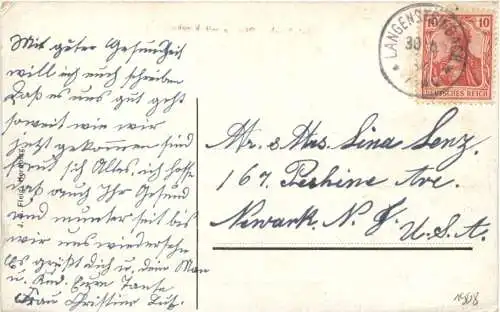 Mit guter Gesundheit
will ich euch schreiben
daß es uns gut geht
soweit wie wir
jetzt gekommen sind
sonst ist Alles, ich hoffe
daß auch Ihr Gesund
und munter seit bis
wir uns wiedersehn
Es grüßt dich u. dein Man
u. Kind. Eure Tante
Frau Christine Lutz.
LANGENSELBOLD
30
10 10
DEUTSCHES REICH
Mr. & Mrs. Lina Lenz.
167. Peshine Ave.
Newark. N. J.
U.S.A.